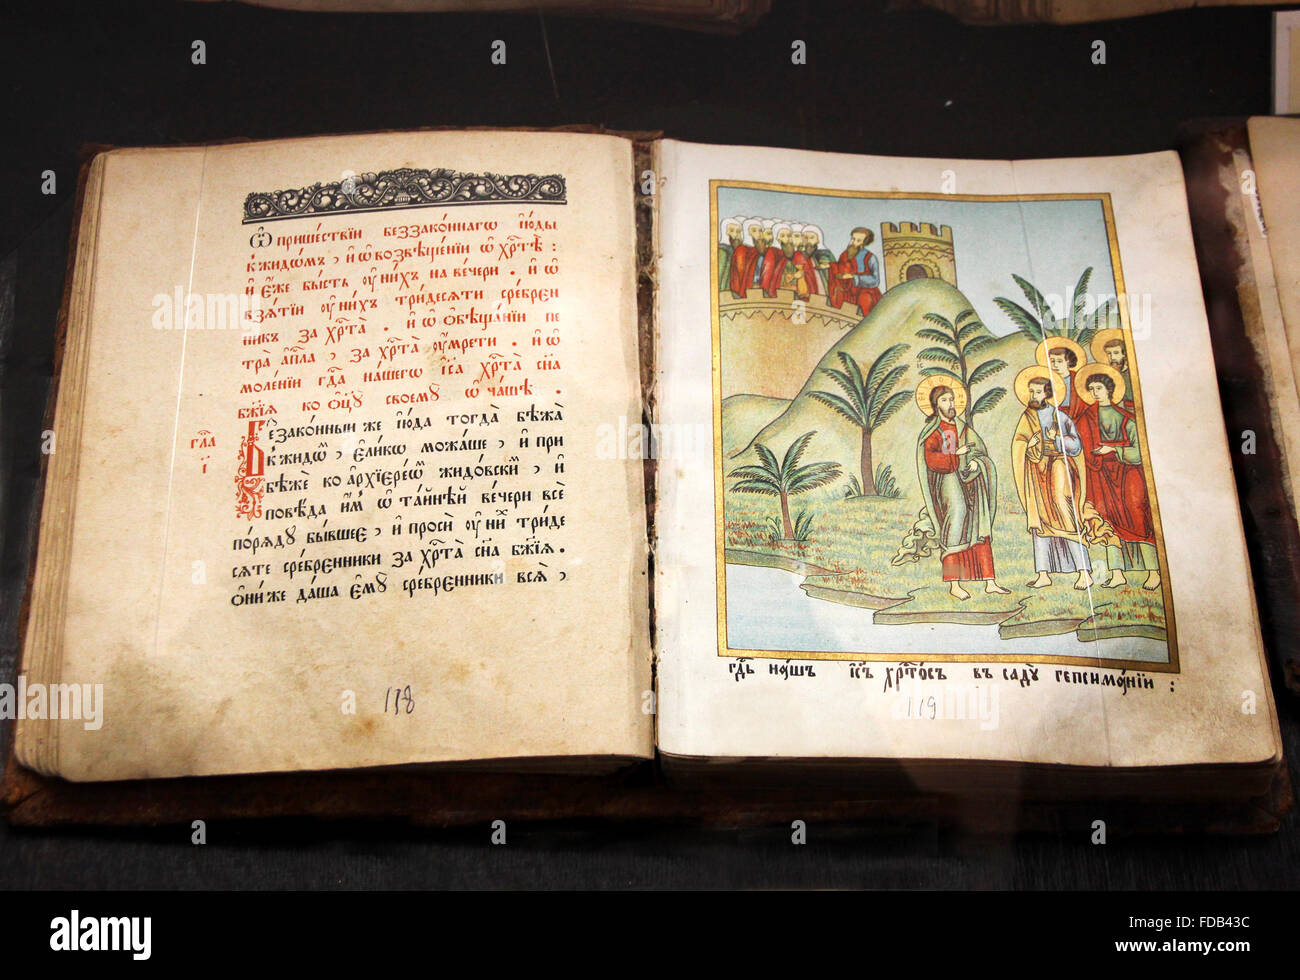 Ѡ пришествїи беззако́ннагѡ їю́ды
к жидѡ́мъ, и҆ ѡ возвѣще́нїи ѡ хрⷭ҇тѣ̀:
и҆ є҆́же бы́сть ᲂу҆ ни́хъ на вече́ри. и҆ ѡ
взѧ́тїи ᲂу҆ ни́хъ три́десѧти сре́брєн
никъ за хрⷭ҇та̀. и҆ ѡ ѡ҆бѣща́нїи пе
тра̀ а҆пⷭ҇ла, за хрⷭ҇та̀ ᲂу҆мре́ти. и҆ ѡ
моле́нїи гдⷭ҇а на́шегѡ і҆и҃са хрⷭ҇та̀ сн҃а
бж҃їѧ ко ѻ҆ц҃ꙋ̀ своемꙋ̀ ѡ ча́шѣ.
гла
і҃
Беззако́нный же їю́да тогда̀ бѣжа̀
к жидѡ́, є҆ли́кѡ можа́ше, и҆ при
бѣ́же ко а҆рхїере́ѡⷨ жидо́вскиⷨ, и҆
повѣ́да и҆̀мъ ѡ та́йнѣй вече́ри всѐ
по́рѧдꙋ бы́вшеє, и҆ просѝ ᲂу҆ ни́хъ три́де
сѧте сре́брєнники за хрⷭ҇та̀ сн҃а бж҃їѧ.
Ѻ҆ни́ же да́ша є҆мꙋ̀ сре́бренники всѧ̀,
118
гдⷭ҇ь на́шъ і҆и҃съ хрⷭ҇то́съ въ садꙋ̀ геѳсима́нїи:
119
alamy
Image ID: FDB43C
www.alamy.com